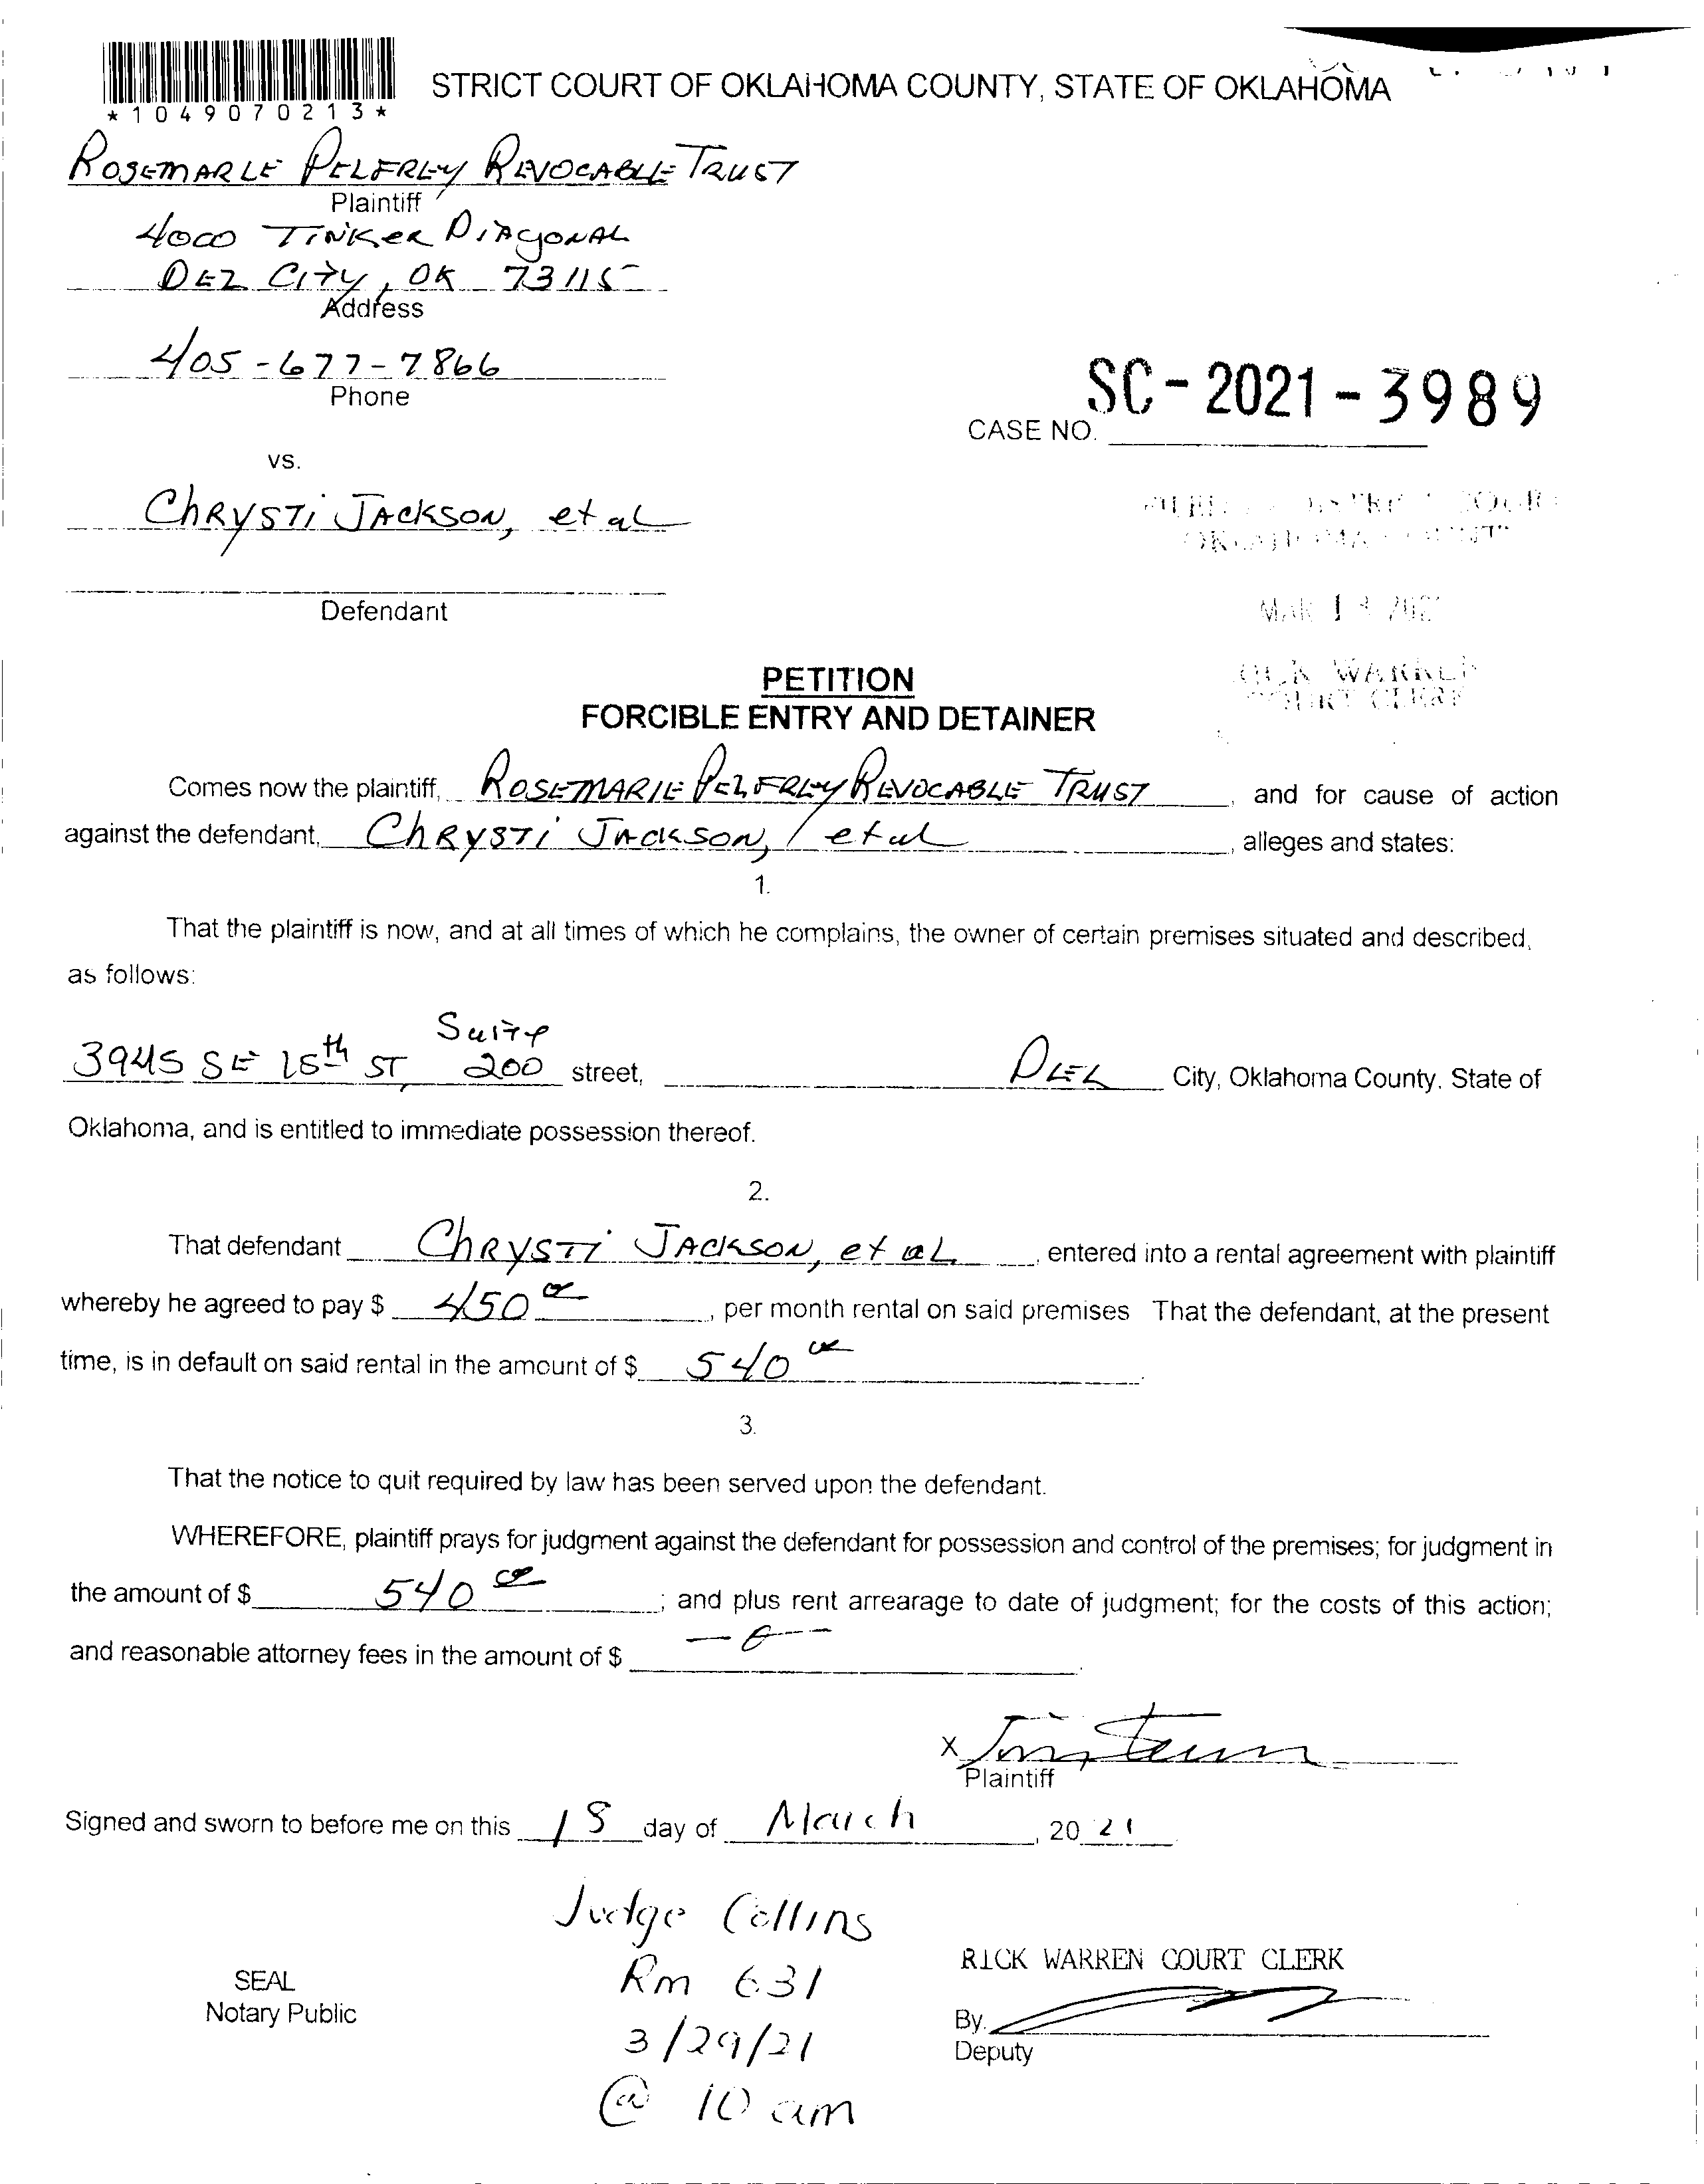 *1049070213*
STRICT COURT OF OKLAHOMA COUNTY, STATE OF OKLAHOMA
ROSEMARIE PELFREY REVOCABLE TRUST
Plaintiff
4000 TINKER DIAGONAL
DEL CITY, OK 73115
Address
405-677-7866
Phone
SC-2021-3989
CASE NO.
vs.
CHRYSTI JACKSON, et al
Defendant
PETITION
FORCIBLE ENTRY AND DETAINER
Comes now the plaintiff, ROSEMARIE PELFREY REVOCABLE TRUST, and for cause of action
against the defendant, CHRYSTI JACKSON, et al, alleges and states:
1.
That the plaintiff is now, and at all times of which he complains, the owner of certain premises situated and described,
as follows:
3945 SE 15th ST, Suite 200 street, DEL City, Oklahoma County, State of
Oklahoma, and is entitled to immediate possession thereof.
2.
That defendant CHRYSTI JACKSON, et al, entered into a rental agreement with plaintiff
whereby he agreed to pay $ 450 00, per month rental on said premises That the defendant, at the present
time, is in default on said rental in the amount of $ 540 00.
3.
That the notice to quit required by law has been served upon the defendant.
WHEREFORE, plaintiff prays for judgment against the defendant for possession and control of the premises; for judgment in
the amount of $ 540 00; and plus rent arrearage to date of judgment; for the costs of this action;
and reasonable attorney fees in the amount of $ -0-.
X
Plaintiff
Signed and sworn to before me on this 18 day of March, 2021
Judge Collins
Rm 631
3/29/21
@ 10 am
SEAL
Notary Public
RICK WARREN COURT CLERK
By.
Deputy